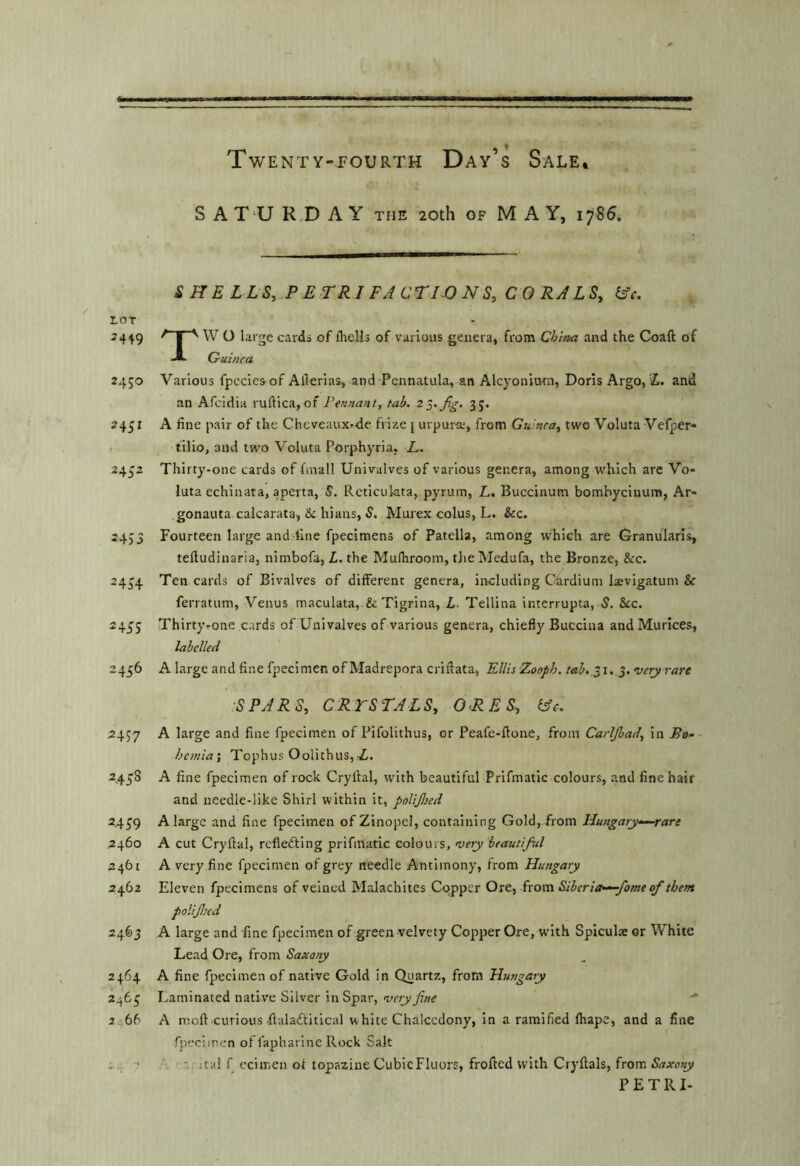 Twenty-fourth Day's Sale,
SATURDAY THE 20th OF MAY, 1786.
SHELLS, PETRIFACTIONS, CORALS, &c.
LOT
2449 TWO large cards of ſhells of various genera, from China and the Coaſt of
Guinea
2450 Various ſpecies of Aſterias, and Pennatula, an Alcyonium, Doris Argo, L. and
an Aſcidia ruſtica, of Pennant, tab. 23. fig. 35.
2451 A fine pair of the Cheveaux-de frize purpuræ, from Guinea, two Voluta Veſper-
tilio, and two Voluta Porphyria, L.
2452 Thirty-one cards of ſmall Univalves of various genera, among which are Vo-
luta echinata, aperta, S. Reticulata, pyrum, L. Buccinum bombycinum, Ar-
gonauta calcarata, & hians, S. Murex colus, L. &c.
2453 Fourteen large and fine ſpecimens of Patella, among which are Granularis,
teſtudinaria, nimboſa, L. the Muſhroom, the Meduſa, the Bronze, &c.
2454 Ten cards of Bivalves of different genera, including Cardium lævigatum &
ferratum, Venus maculata, & Tigrina, L. Tellina interrupta, S. &c.
2455 Thirty-one cards of Univalves of various genera, chiefly Buccina and Murices,
labelled
2456 A large and fine ſpecimen of Madrepora criſtata, Ellis Zooph. tab. 31. 3. very rare
SPARS, CRYSTALS, ORES, &c.
2457 A large and fine ſpecimen of Piſolithus, or Peaſe-ſtone, from Carlſbad, in Bo-
hemia; Tophus Oolithus, L.
2458 A fine ſpecimen of rock Cryſtal, with beautiful Priſmatic colours, and fine hair
and needle-like Shirl within it, poliſhed
2459 A large and fine ſpecimen of Zinopel, containing Gold, from Hungary—rare
2460 A cut Cryſtal, reflecting priſmatic colours, very beautiful
2461 A very fine ſpecimen of grey needle Antimony, from Hungary
2462 Eleven ſpecimens of veined Malachites Copper Ore, from Siberia—ſome of them
poliſhed
2463 A large and fine ſpecimen of green velvety Copper Ore, with Spiculæ or White
Lead Ore, from Saxony
2464 A fine ſpecimen of native Gold in Quartz, from Hungary
2465 Laminated native Silver in Spar, very fine
2 66 A moſt curious ſtalactitical white Chalcedony, in a ramified ſhape, and a fine
ſpecimen of ſapharine Rock Salt
ſ ecimen of topazine Cubic Fluors, froſted with Cryſtals, from Saxony
PETRI-